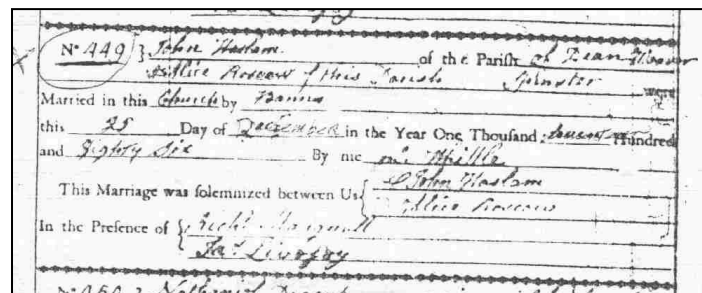 No 449 } John Haslam of the Parish of Dean Weaver
& Alice Roscow of this Parish Spinster were
Married in this Church by Banns
this 25 Day of December in the Year One Thousand Seven Hundred
and Eighty Six By me Whittle
This Marriage was solemnized between Us { John Haslam
Alice Roscow
In the Presence of { Richd
Jas. Livesay
No 450 } Nathaniel